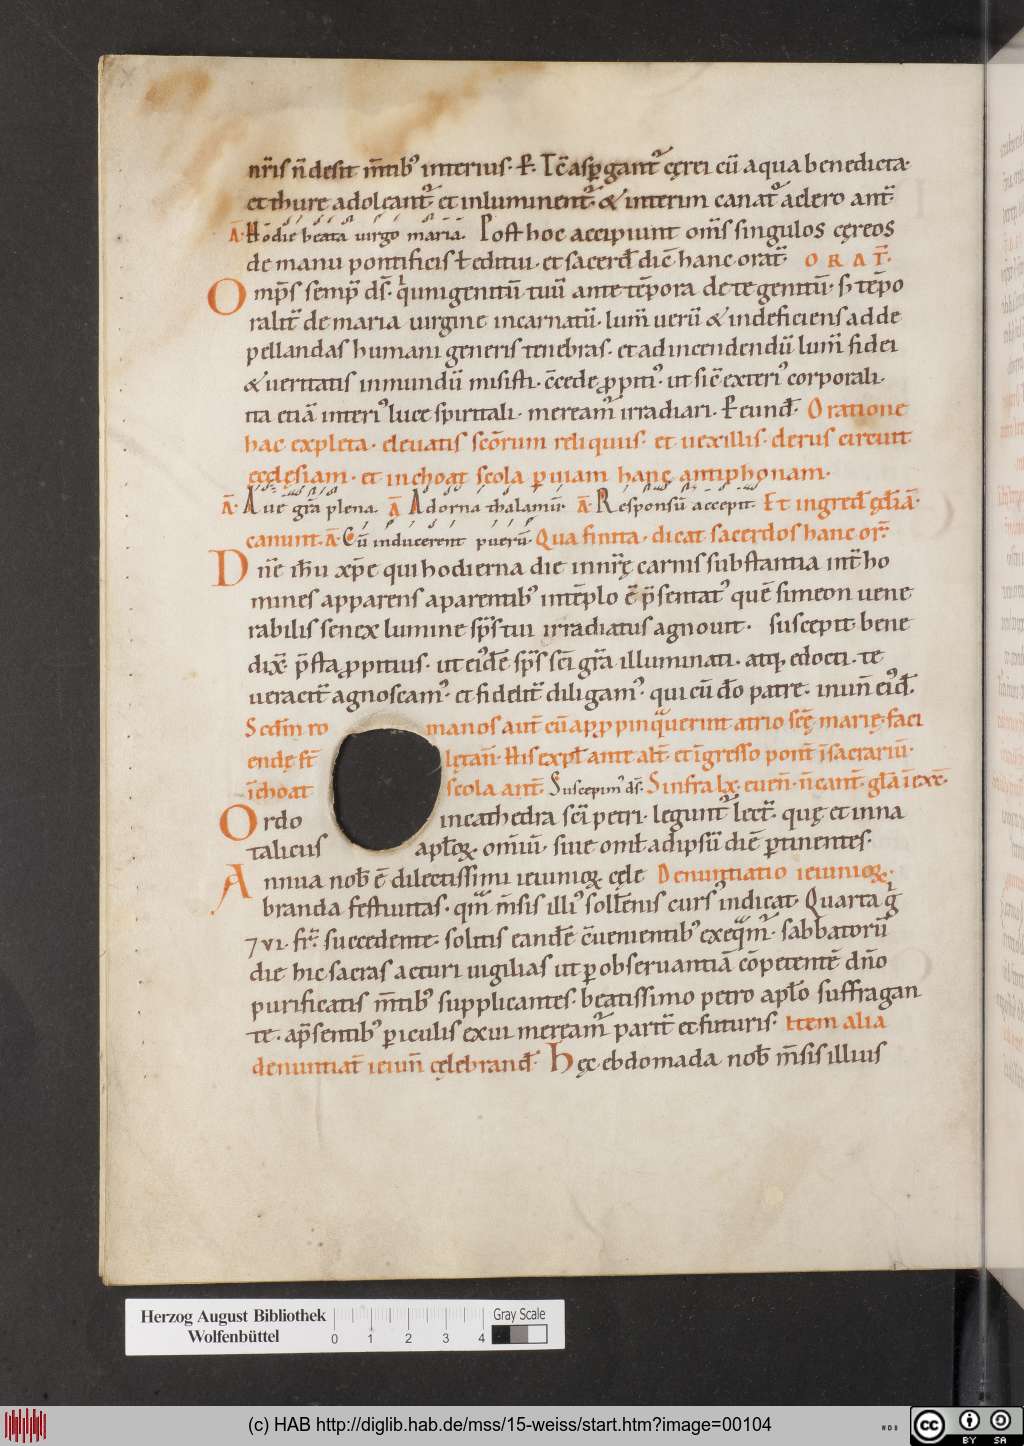 nr̄is n̄ desit m̄tib᾽ interius· ꝑ· Tc̄ asꝑgant᾽ cęrei cū aqua benedicta·
et thure adoleant᾽ et inluminent᾽ & interim canat᾽ a clero ant̄
Ā· Hodie beata uirgo maria. Post hoc accipiunt om̄s singulos cęreos
de manu pontificis ł editui· et sacerd̄ dic̄ hanc orat̄ ORAT̄·
Omp̄s semp̄ ds̄· q' unigenitū tuū ante tēpora de te genitū· s; tēpo
ralit̄ de maria uirgine incarnatū· lum̄ uerū & indeficiens ad de
pellandas humani generis tenebras· et ad incendendū lum̄ fidei
& ueritatis in mundū misisti· c̄cede ꝓpiti᾽ ut sic̄ exteri᾽ corporali·
ita etiā interi᾽ luce spiritali· meream᾽ irradiari· P eund̄· Oratione
hac expleta· eleuatis sc̄orum reliquiis· et uexillis· clerus circuit
ecclęsiam· et inchoat scola ꝑ uiam hanc antiphonam·
Ā· Aue gr̄a plena. Ā Adorna thalamū· Ā· Responsū accepit· Et ingred̄ ęcl̄iā·
canunt· Ā· Cū inducerent puerū· Qua finita· dicat sacerdos hanc or̄·
Dn̄e ih̄u xp̄e qui hodierna die in nr̄ę carnis substantia int̄ ho
mines apparens a parentib᾽ in tēplo ē p̄sentat᾽ quē simeon uene
rabilis senex lumine sp̄s tui irradiatus agnouit· suscepit· bene
dix̄· p̄sta ꝓpitius· ut ei᾽dē sp̄s sc̄i gr̄a illuminati· atq; edocti· te
ueracit̄ agnoscam᾽· et fidelit̄ diligam᾽· qui cū dō patre· in un̄ ei᾽d̄.
Scd̄m romanos aut̄ cū apꝓpinquuerint atrio sc̄ę marię· faci
endę st̄ lętan̄· His expl̄ ante alt̄· et īgresso pont̄ ī sacrariū·
īchoat scola ant̄· Suscepim᾽ ds̄· S infra lx̄· euen̄· n̄ cant̄· gl̄a ī exc̄·
Ordo in cathedra sc̄i petri· legunt᾽ lect̄· quę et in na
talicus apl̄oꝝ· om̄iū· siue oml̄ ad ipsū diē ꝑtinentes·
Annua nob̄ ē dilectissimi ieiunioꝝ cęle Denuntiatio ieiunioꝝ·
branda festiuitas· qm̄ m̄sis illi᾽ sollēnis curs᾽ indicat· Quarta g̊
⁊ vi· fr̄· succedente· solitis eandē c̄uenientib᾽ exeqm᾽· sabbatorū
die hic sacras acturi uigilias ut ꝑ obseruantiā cōpetentē dn̄o
purificatis m̄tib᾽ supplicantes· beatissimo petro apl̄o suffragan
te· a p̄sentib᾽ ꝑiculis exui mereām᾽ parit̄ et futuris· Item alia
denuntiat̄ ieiun̄ cęlebrand̄· Hęc ebdomada nob̄ m̄sis illius
Herzog August Bibliothek
Wolfenbüttel
0 1 2 3 4
Gray Scale
(c) HAB http://diglib.hab.de/mss/15-weiss/start.htm?image=00104
cc BY SA